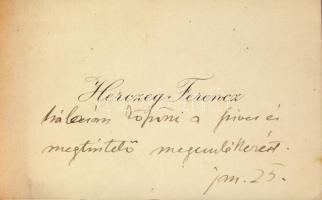 Herczeg Ferencz
hálásan köszöni a szives és
megtisztelő megemlékezést.
jan. 25.